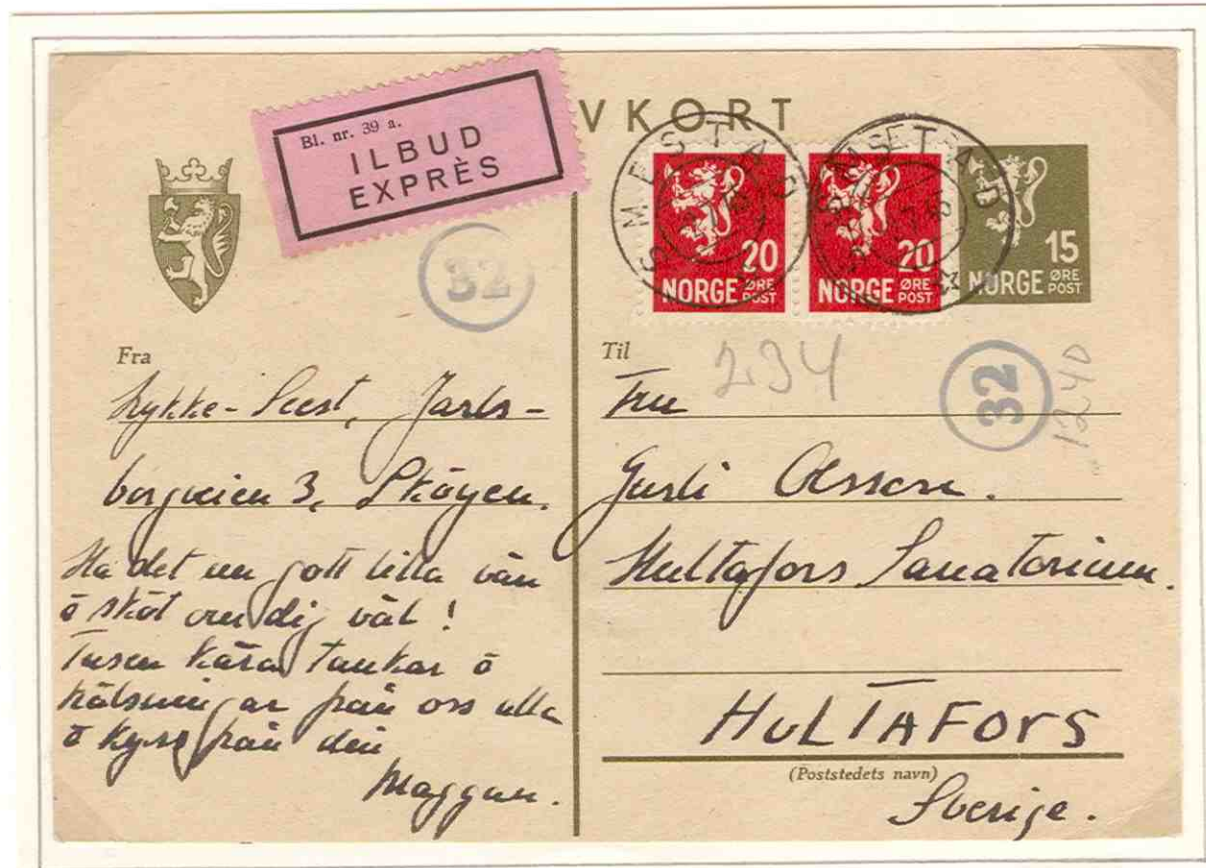 VKORT
Bl. nr. 39 a.
ILBUD
EXPRÈS
SMESTAD
SMESTAD
20
NORGE ØRE POST
20
NORGE ØRE POST
15
NORGE ØRE POST
32
Fra
Lykke-Seest, Jarls-
borgveien 3, Skøyen.
Ha det nu gott lilla vän
o sköt om dig väl!
Tusen kära tankar o
hälsningar från oss alla
o kyss från din
Maggan.
Til
234
32
1240
Fru
Gurli Olsson.
Hultafors Sanatorium.
HULTAFORS
(Poststedets navn)
Sverige.